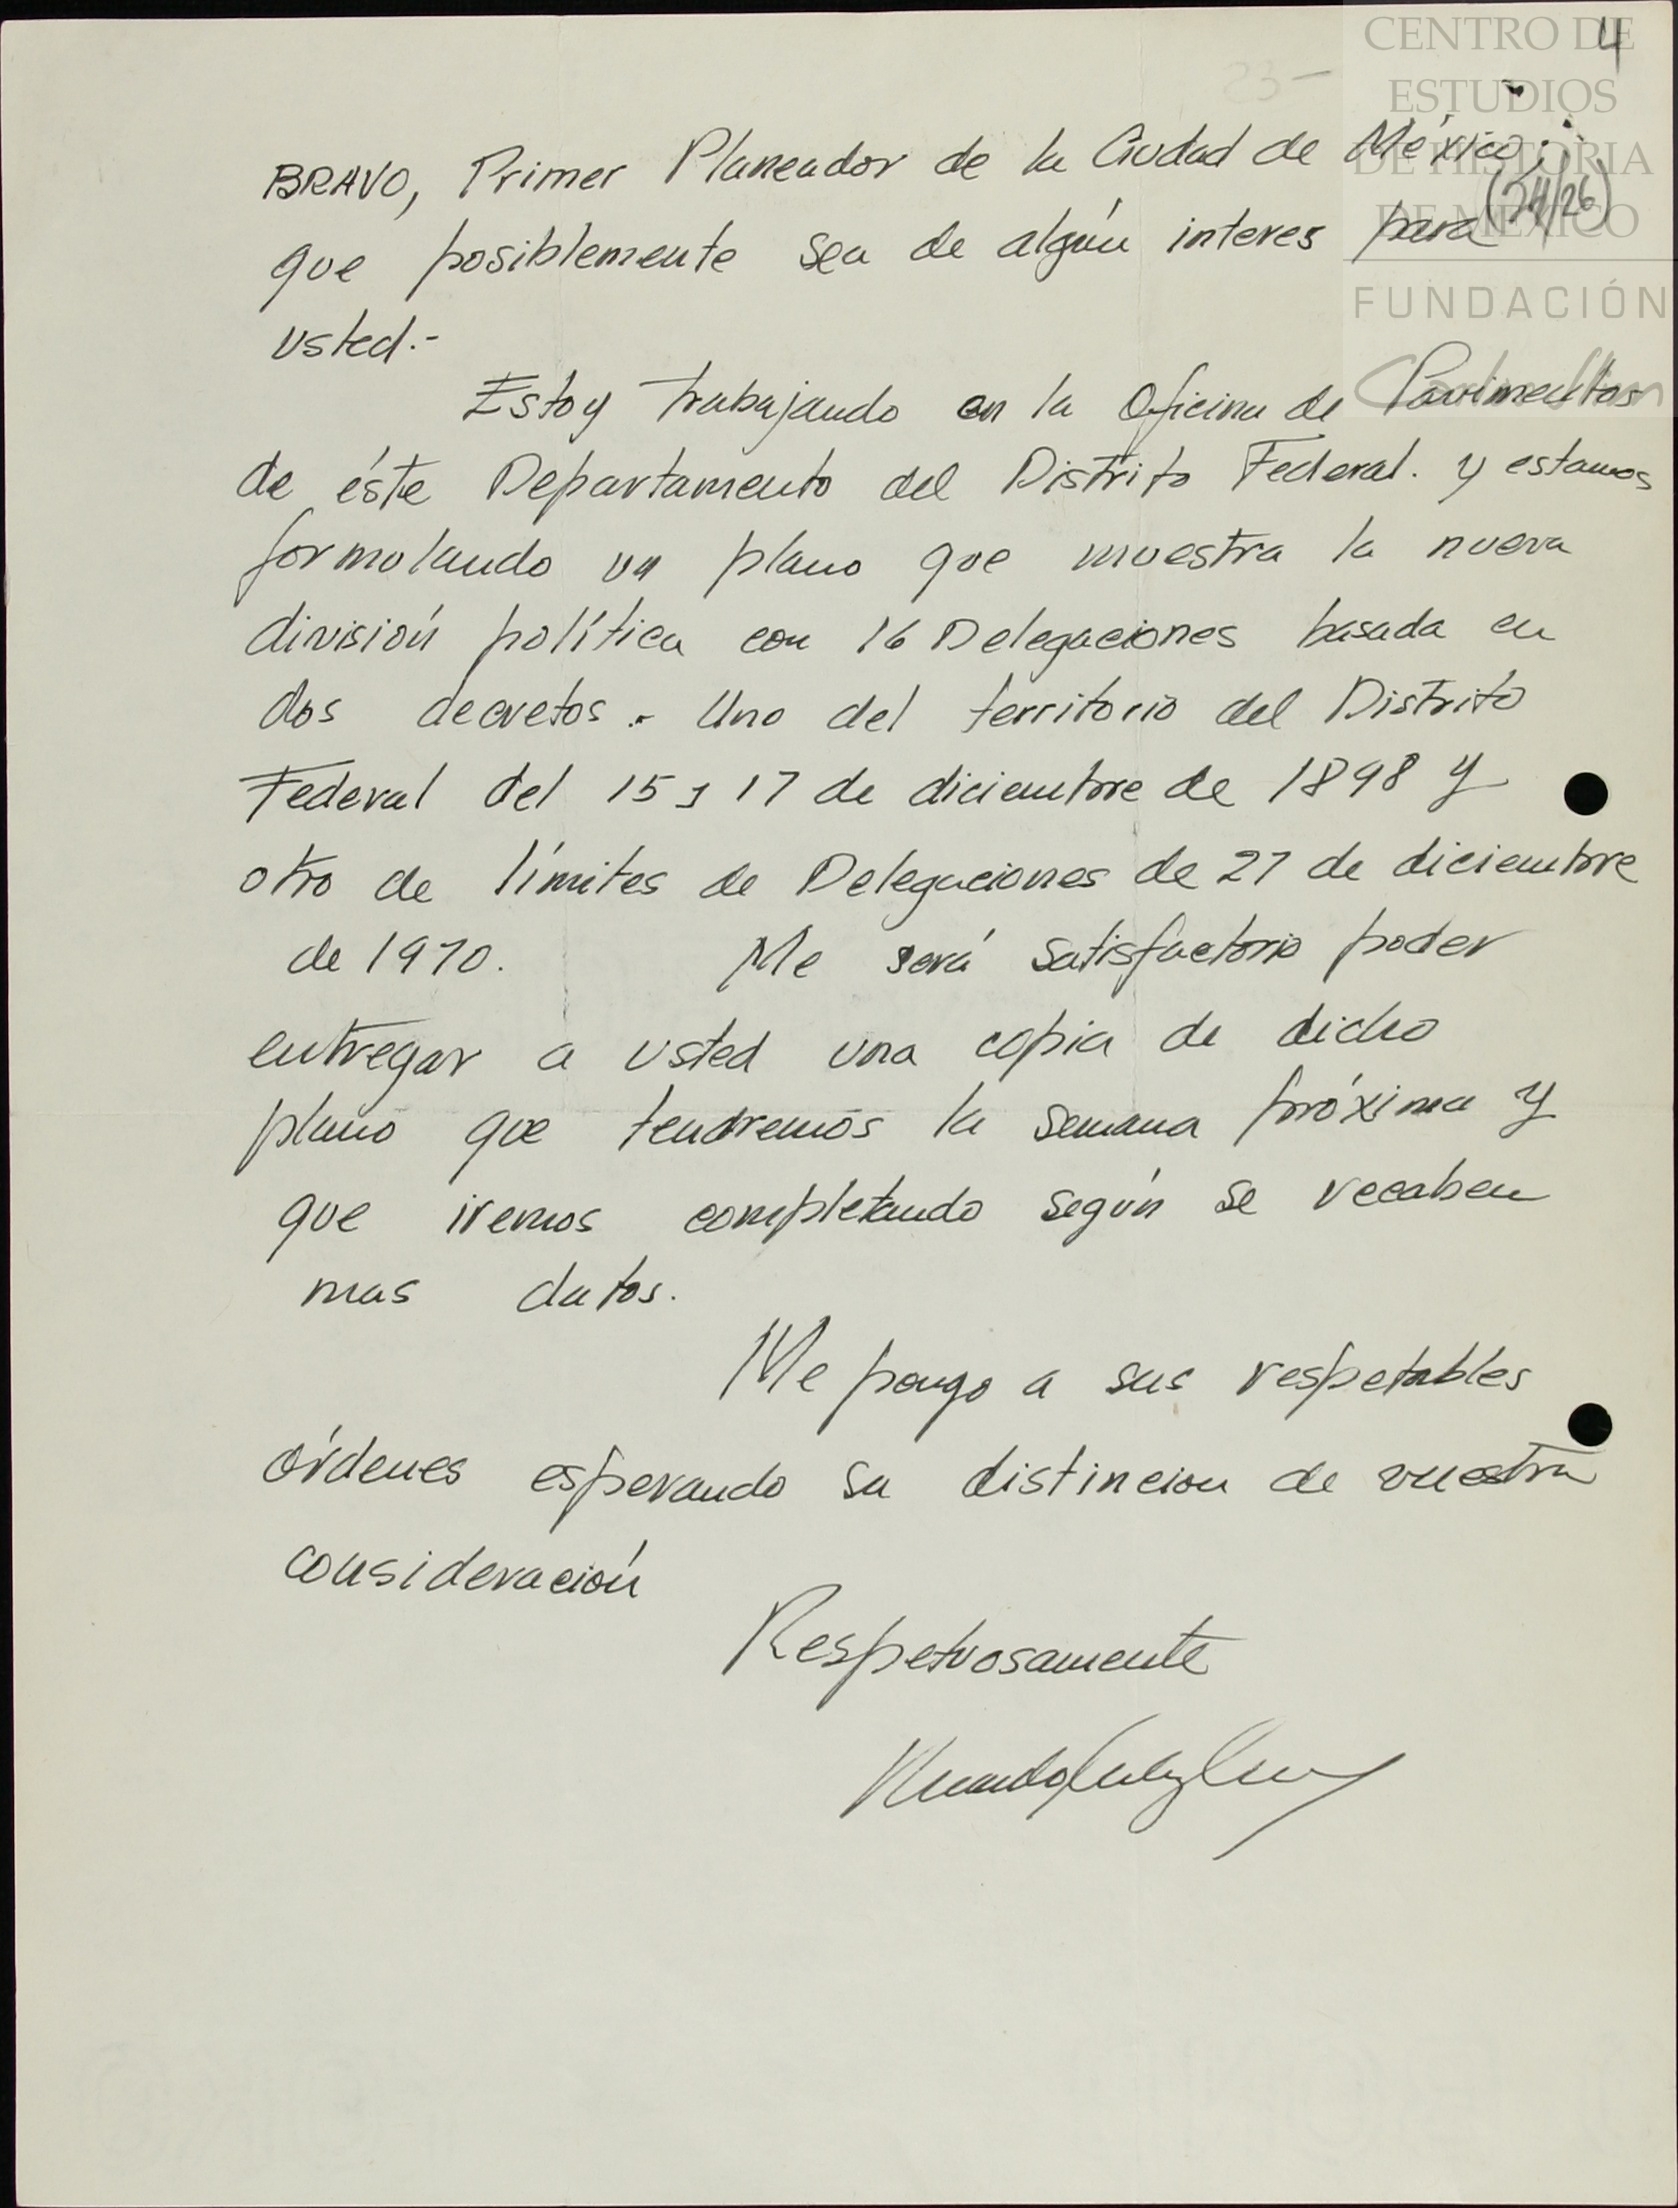 4
CENTRO DE
ESTUDIOS
DE HISTORIA
DE MÉXICO
FUNDACIÓN
23-
(34/26)
BRAVO, Primer Planeador de la Ciudad de México;
que posiblemente sea de algún interes para
usted.-
Estoy trabajando en la Oficina de Pavimentos
de éste Departamento del Distrito Federal. y estamos
formulando un plano que muestra la nueva
división política con 16 Delegaciones basada en
dos decretos.- Uno del territorio del Distrito
Federal del 15 y 17 de diciembre de 1898 y
otro de límites de Delegaciones de 27 de diciembre
de 1970. Me será satisfactorio poder
entregar a usted una copia de dicho
plano que tendremos la semana próxima y
que iremos completando según se recaben
mas datos.
Me pongo a sus respetables
órdenes esperando su distincion de vuestra
consideración
Respetuosamente